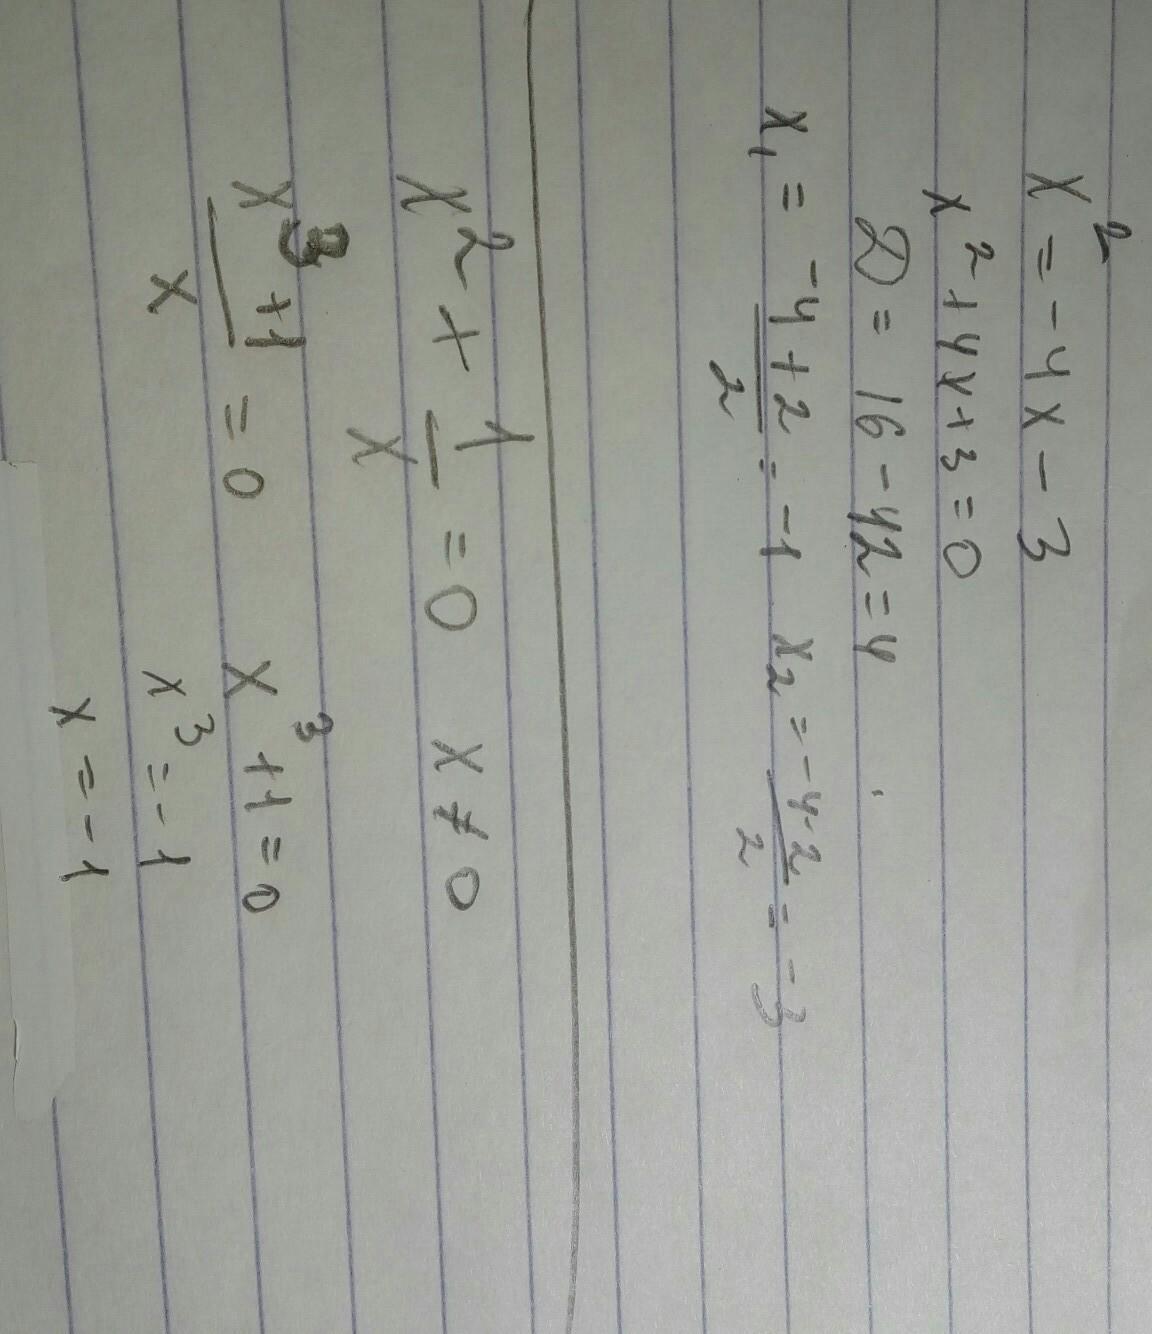 x² = -4x - 3
x² + 4x + 3 = 0
D = 16 - 42 = 4
x₁ = (-4+2)/2 = -1 x₂ = (-4-2)/2 = -3
x² + 1/x = 0 x ≠ 0
(x³+1)/x = 0 x³ + 1 = 0
x³ = -1
x = -1